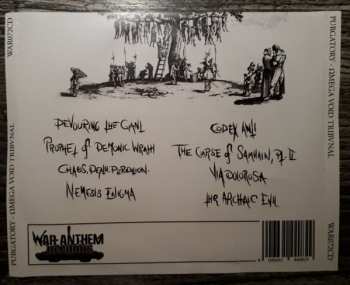 WAR072CD
PURGATORY · ΩMEGA VOID TRIBVNAL
DEVOURING THE GIANT
PROPHET OF DEMONIC WRATH
CHAOS.DEATH.PERDITION.
NEMESIS ENIGMA
CODEX ANTI
THE CURSE OF SAMHAIN, PT. II
VIA DOLOROSA
THE ARCHAIC EVIL
WAR-ANTHEM
RECORDS
PURGATORY · ΩMEGA VOID TRIBVNAL
WAR072CD